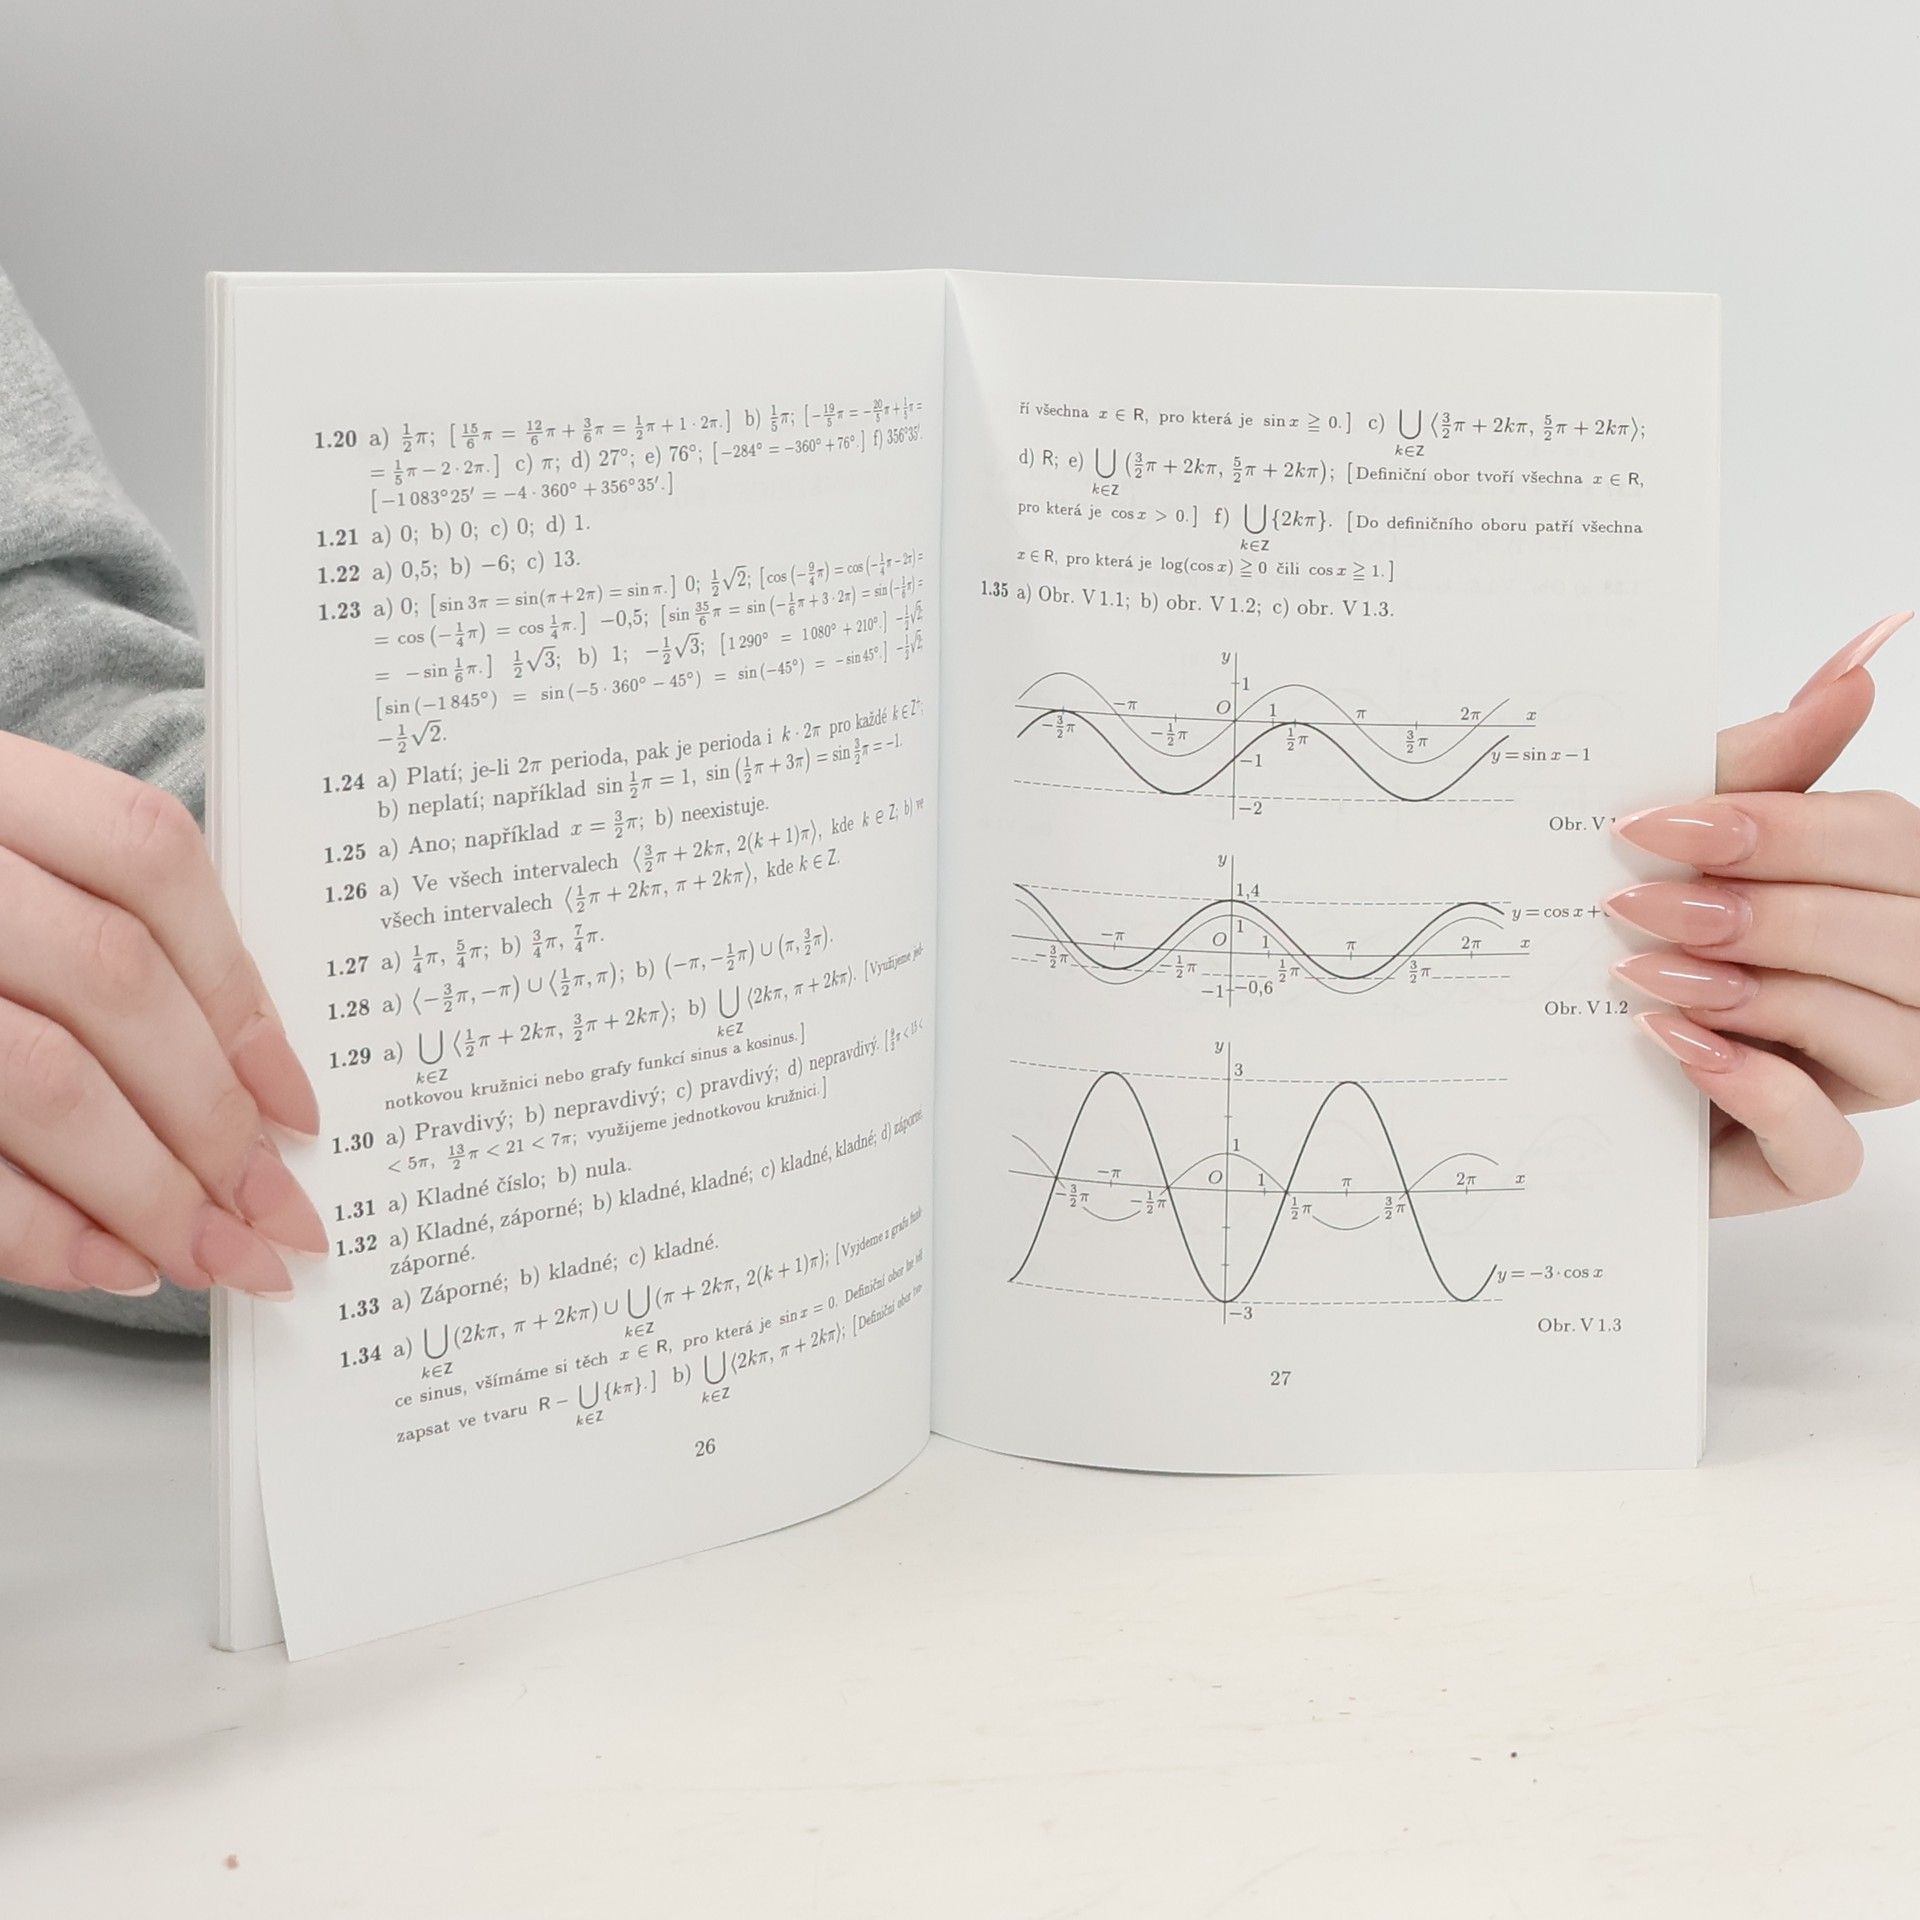 1.20 a) ½π; [15/6π = 12/6π + 3/6π = ½π + 1 · 2π.] b) 1/5π; [−19/5π = −20/5π + 1/5π =
= 1/5π − 2 · 2π.] c) π; d) 27°; e) 76°; [−284° = −360° + 76°.] f) 356°35′.
[−1 083°25′ = −4 · 360° + 356°35′.]
1.21 a) 0; b) 0; c) 0; d) 1.
1.22 a) 0,5; b) −6; c) 13.
1.23 a) 0; [sin 3π = sin(π + 2π) = sin π.] 0; ½√2; [cos (−9/4π) = cos (−¼π − 2π) =
= cos (−¼π) = cos ¼π.] −0,5; [sin 35/6π = sin (−1/6π + 3 · 2π) = sin (−1/6π) =
= − sin 1/6π.] ½√3; b) 1; −½√3; [1 290° = 1 080° + 210°.] −½√2;
[sin (−1 845°) = sin (−5 · 360° − 45°) = sin(−45°) = − sin 45°.] −½√2;
−½√2.
1.24 a) Platí; je-li 2π perioda, pak je perioda i k · 2π pro každé k ∈ Z⁺;
b) neplatí; například sin ½π = 1, sin (½π + 3π) = sin 3/2π = −1.
1.25 a) Ano; například x = 3/2π; b) neexistuje.
1.26 a) Ve všech intervalech ⟨3/2π + 2kπ, 2(k + 1)π⟩, kde k ∈ Z; b) ve
všech intervalech ⟨½π + 2kπ, π + 2kπ⟩, kde k ∈ Z.
1.27 a) ¼π, 5/4π; b) ¾π, 7/4π.
1.28 a) ⟨−3/2π, −π) ∪ ⟨½π, π); b) (−π, −½π) ∪ (π, 3/2π).
1.29 a) ⋃ ⟨½π + 2kπ, 3/2π + 2kπ⟩; b) ⋃ ⟨2kπ, π + 2kπ⟩. [Využijeme jed-
k∈Z k∈Z
notkovou kružnici nebo grafy funkcí sinus a kosinus.]
1.30 a) Pravdivý; b) nepravdivý; c) pravdivý; d) nepravdivý. [9/2π < 15 <
< 5π, 13/2π < 21 < 7π; využijeme jednotkovou kružnici.]
1.31 a) Kladné číslo; b) nula.
1.32 a) Kladné, záporné; b) kladné, kladné; c) kladné, kladné; d) záporné,
záporné.
1.33 a) Záporné; b) kladné; c) kladné.
1.34 a) ⋃ (2kπ, π + 2kπ) ∪ ⋃ (π + 2kπ, 2(k + 1)π); [Vyjdeme z grafu funk-
k∈Z k∈Z
ce sinus, všímáme si těch x ∈ R, pro která je sin x = 0. Definiční obor lze též
zapsat ve tvaru R − ⋃ {kπ}.] b) ⋃ ⟨2kπ, π + 2kπ⟩; [Definiční obor tvo-
k∈Z k∈Z
26
ří všechna x ∈ R, pro která je sin x ≧ 0.] c) ⋃ ⟨3/2π + 2kπ, 5/2π + 2kπ⟩;
k∈Z
d) R; e) ⋃ (3/2π + 2kπ, 5/2π + 2kπ); [Definiční obor tvoří všechna x ∈ R,
k∈Z
pro která je cos x > 0.] f) ⋃ {2kπ}. [Do definičního oboru patří všechna
k∈Z
x ∈ R, pro která je log(cos x) ≧ 0 čili cos x ≧ 1.]
1.35 a) Obr. V 1.1; b) obr. V 1.2; c) obr. V 1.3.
y
1
−π O 1 π 2π x
−3/2π −½π ½π 3/2π
−1
y = sin x − 1
−2
Obr. V
y
1,4
y = cos x +
1
−π O 1 π 2π x
−3/2π −½π ½π 3/2π
−1 −0,6
Obr. V 1.2
y
3
1
−π O 1 π 2π x
−3/2π −½π ½π 3/2π
y = −3 · cos x
−3
Obr. V 1.3
27